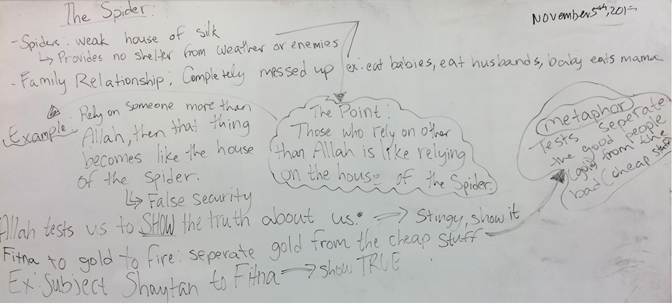 The Spider:
November 5th, 201
- Spiders: weak house of silk
↳ Provides no shelter from weather or enemies
- Family Relationship: Completely messed up ex: eat babies, eat husbands, baby eats mama
Example
Rely on someone more than
Allah, then that thing
becomes like the house
of the spider.
↳ False security
The Point:
Those who rely on other
than Allah is like relying
on the house of the Spider.
metaphor
Tests seperate
the good people
(gold) from the
bad (cheap stuff)
Allah tests us to SHOW the truth about us. → Stingy, show it
Fitna to gold to fire: seperate gold from the cheap stuff
Ex: Subject Shaytan to Fitna → show TRUE